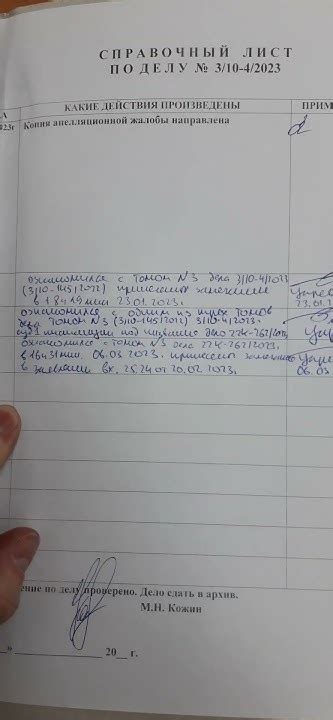 СПРАВОЧНЫЙ ЛИСТ
ПО ДЕЛУ № 3/10-4/2023
КАКИЕ ДЕЙСТВИЯ ПРОИЗВЕДЕНЫ
ПРИМ
Копия апелляционной жалобы направлена
ознакомился с томом №3 дела 3/10-4/2023
(3/10-145/2022) принесены замечания
в 18ч19мин 23.01.2023.
ознакомился с одним из двух томов
дела томом №3 (3/10-145/2022) 3/10-4/2023.
суд 1 инстанции под названием дело 22к-267/2023.
ознакомился с томом №3 дела 22к-267/2023.
в 16ч31мин. 06.03.2023. принесены замечания
в заявлении вх. 2524 от 20.02.2023.
06.03
ение по делу проверено. Дело сдать в архив.
М.Н. Кожин
» 20 г.